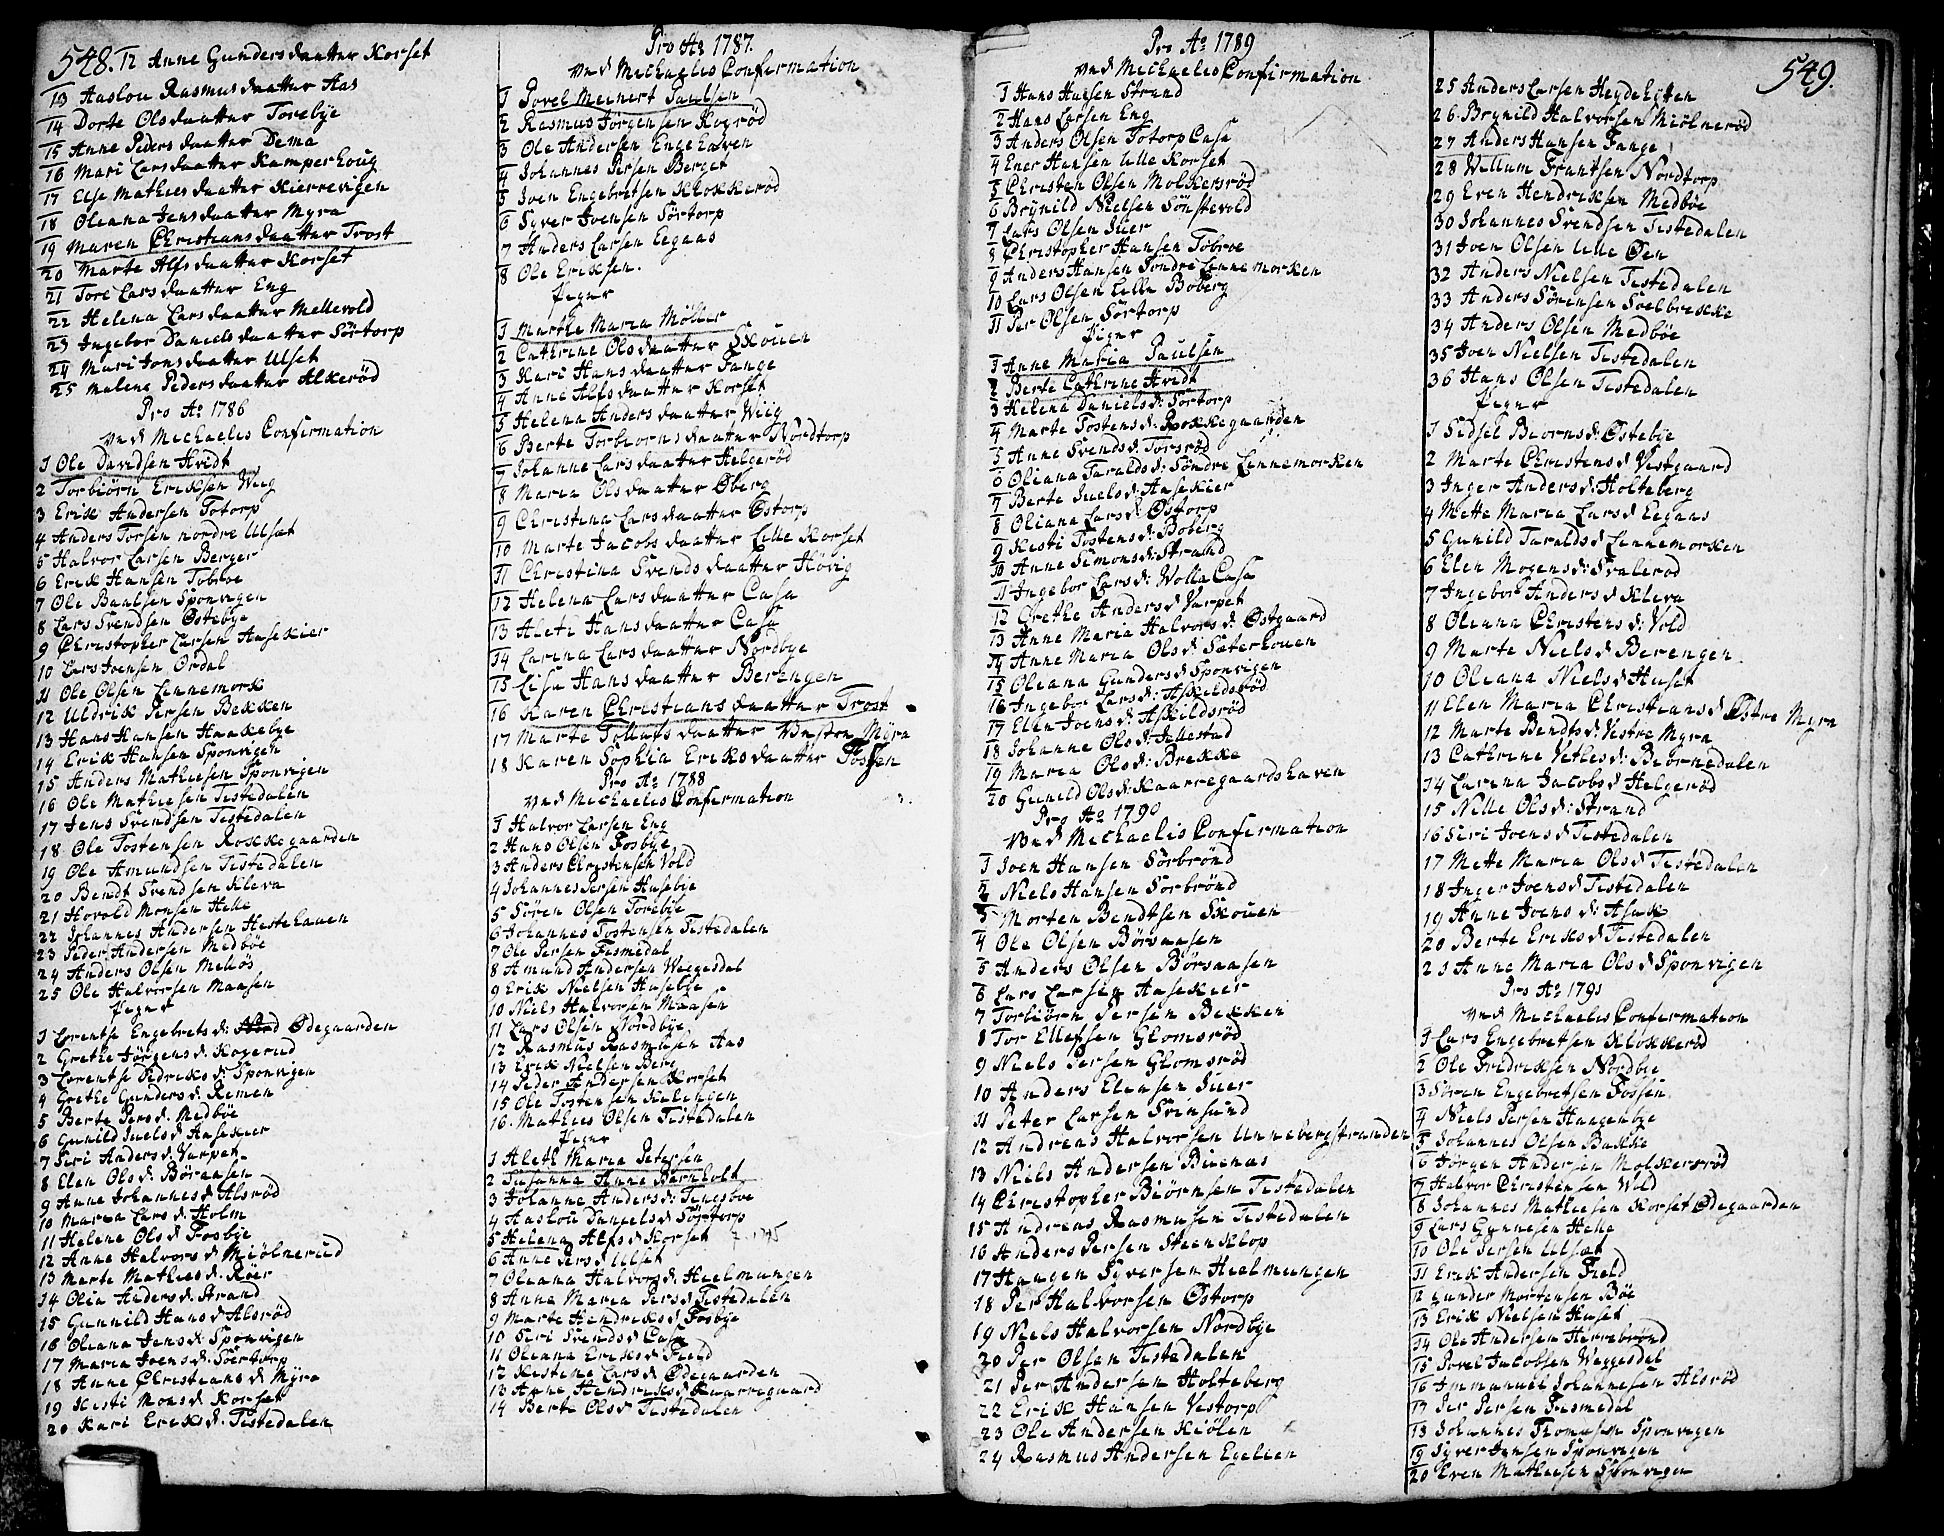 548.
12 Anne Gundersdaatter Korset
13 Aaslou Rasmusdaatter Aas
14 Dorte Olsdaatter Torebye
15 Anne Pedersdaatter Dema
16 Mari Larsdaatter Kamperhoug
17 Else Mathiesdaatter Kierrevigen
18 Oleana Jensdaatter Myra
19 Maren Christiansdaatter Trost
20 Marte Alfsdaatter Korset
21 Tore Larsdaatter Eng
22 Helena Larsdaatter Mellevold
23 Ingebor Danielsdaatter Sörtorp
24 Mari Jonsdaatter Ulset
25 Malene Pedersdaatter Alkeröd
Pro Ao 1786
ved Michaelis Confirmation
1 Ole Davidsen Hvidt
2 Torbiörn Eriksen Wiig
3 Erik Andersen Totorp
4 Anders Torsen nordre Ulset
5 Halvor Larsen Berger
6 Erik Hansen Tobroe
7 Ole Baalsen Sponvigen
8 Lars Svendsen Östebye
9 Christopher Larsen Aasekier
10 Lars Joensen Ordal
11 Ole Olsen Lennemork
12 Uldrik Persen Bekken
13 Hans Hansen Haakebye
14 Erik Hansen Sponvigen
15 Anders Mathiesen Sponvigen
16 Ole Mathiesen Tistedalen
17 Jens Svendsen Tistedalen
18 Ole Tostensen Rokkegaarden
19 Ole Amundsen Tistedalen
20 Bendt Svendsen Kleva
21 Horold Monsen Helle
22 Johannes Andersen Hestehauen
23 Peder Andersen Medböe
24 Anders Olsen Meliös
25 Ole Halvorsen Maasen
Piger
1 Lorentse Engebretsd: Ödegaarden
2 Grethe Jörgensd: Kogerud
3 Lorentse Fedriksd: Sponvigen
4 Grethe Gundersd: Remen
5 Berte Persd: Medböe
6 Gunild Juelsd Aasekier
7 Siri Andersd: Varpet
8 Elen Olsd: Böraasen
9 Anne Johannesd Alsröd
10 Maria Larsd: Holm
11 Helene Olsd: Fosbye
12 Anne Halvorsd Miölnerud
13 Marte Mathiesd: Röer
14 Olia Andersd: Strand
15 Gunnild Hansd: Alsröd
16 Oliana Jensd: Sponvigen
17 Maria Joensd: Soertorp
18 Anne Christiansd: Myra
19 Kisti Monsd: Korset
20 Kari Eriksd: Tistedalen
Pro Ao 1787.
ved Michaelis Confirmation
1 Povel Meinert Paulsen
2 Rasmus Jörgensen Kogröd
3 Ole Andersen Engehaven
4 Johannes Persen Berget
5 Joen Engebretsen Klokkeröd
6 Syver Joensen Sörtorp
7 Anders Larsen Eegaas
8 Ole Eriksen.
Piger
1 Marthe Maria Möller
2 Cathrine Olsdaatter Skouen
3 Kari Hansdaatter Fange
4 Anne Alfsdaatter Korset
5 Helena Andersdaatter Wiig
6 Berte Torbiornsdaatter Nordtorp
7 Johanne Larsdaatter Helgeröd
8 Maria Olsdaatter Öberg
9 Christina Larsdaatter Östorp
10 Marte Jacobsdaatter Lille Korset
11 Christina Svendsdaatter Hövig
12 Helena Larsdaatter Casa
13 Aleti Hansdaatter Casa
14 Larina Larsdaatter Nordbye
15 Lisa Hansdaatter Berengen
16 Karen Christiansdaatter Trost
17 Marte Tollufsdaatter Vesten Myra
18 Karen Sophia Eriksdaatter Fossen
Pro Ao 1788
ved Michaelis Confermation
1 Halvor Larsen Eng
2 Hans Olsen Fosbye
3 Anders Christensen Vold
4 Johannes Persen Husebye
5 Sören Olsen Torebye
6 Johannes Tostensen Tistedalen
7 Ole Persen Fismedal
8 Amund Andersen Weggesdal
9 Erik Nielsen Husebye
10 Niels Halvorsen Maasen
11 Lars Olsen Nordbye
12 Rasmus Rasmusen Aas
13 Erik Nielsen Berg
14 Peder Andersen Korset
15 Ole Tostensen Kulingen
16. Mathies Olsen Tistedalen
Piger
1 Aleth Maria Petersen
2 Susanna Anne Bernholt
3 Johanne Andersd: Tingsboe
4 Aaslou Danielsd: Sörtorp
5 Helena Alfsd Korset
6 Anne Persd Ulset
7 Oleana Halvorsd: Hielmungen
8 Anne Maria Persd Tistedalen
9 Marte Hendriksd Fosbye
10 Siri Svendsd Casa
11 Oleana Eriksd: Field
12 Kistene Larsd Ödegaarden
13 Anne Hendriksd Kaarregaard
14 Berte Olsd Tistedalen
Pro Ao 1789
ved Michaelis Confirmation
1 Hans Hansen Strand
2 Hans Larsen Eng
3 Anders Olsen Totorp Casa
4 Ener Hansen Lille Korset
5 Christen Olsen Molkersröd
6 Brynild Nielsen Sönstevold
7 Lars Olsen Juer
8 Christopher Hansen Tobroe
9 Anders Hansen Söndre Lennemorken
10 Lars Olsen Lille Boberg
11 Per Olsen Sörtorp
Piger
1 Anne Maria Paulsen
2 Berte Cathrine Hvidt
3 Helena Danielsd: Sörtorp
4 Marte Tostensd: Rokkegaarden
5 Anne Svendsd: Torsröd
6 Oliana Taraldsd: Söndre Lennemorken
7 Berte Juelsd: Aasekier
8 Oliana Larsd: Östorp
9 Kisti Tostensd: Boberg
10 Anne Simonsd: Strand
11 Ingebor Larsd: Volla Casa
12 Grethe Andersd Varpet
13 Anne Maria Halvorsd: Östgaard
14 Anne Maria Olsd Sæterhouen
15 Oliana Gundersd Sponvigen
16 Ingebor Larsd: Askildsröd
17 Ellen Joensd: Askildsröd
18 Johanne Olsd: Jellestad
19 Maria Olsd: Brekke
20 Gunild Olsd: Kaarregaardshaven
Pro Ao 1790
ved Michaelis Confermation
1 Joen Hansen Sörbrönd
2 Niels Hansen Sorbrönd
3 Morten Bendtsen Skouen
4 Ole Olsen Börsaasen
5 Anders Olsen Börsaasen
6 Lars Larsen Aasekier
7 Torbiörn Persen Bekken
8 Tor Ellefsen Glomsröd
9 Niels Persen Glomsröd
10 Anders Elensen Juer
11 Peter Larsen Svinsund
12 Andreas Halvorsen Unnebergstranden
13 Niels Andersen Buenas
14 Christopher Biörnsen Tistedalen
15 Andreas Rasmusen Tistedalen
16 Anders Persen Steenklop
17 Haagen Syversen Hielmungen
18 Per Halvorsen Östorp
19 Niels Halvorsen Nordbye
20 Per Olsen Tistedalen
21 Per Andersen Holteberg
22 Erik Hansen Vestorp
23 Ole Andersen Kiölen
24 Rasmus Andersen Egelien
549.
25 Anders Larsen Heydehiten
26 Brynild Halvorsen Miölneröd
27 Anders Hansen Fange
28 Villum Frantsen Nordtorp
29 Even Hendriksen Medböe
30 Johannes Svendsen Tistedalen
31 Joen Olsen Lille Öen
32 Anders Nielsen Tistedalen
33 Anders Sörensen Soelbrekke
34 Anders Olsen Medböe
35 Joen Nielsen Tistedalen
36 Hans Olsen Tistedalen
Piger
1 Sidsel Beornsd: Östebye
2 Marte Christensd Vestgaard
3 Inger Andersd: Holteberg
4 Mette Maria Larsd Eegaas
5 Gunild Taraldsd Lennemorken
6 Elen Mogensd: Svaleröd
7 Ingebor Andersd Kleva
8 Oleana Christensd: Vold
9 Marte Nielsd Berengen
10 Oleana Nielsd Huset
11 Elen Maria Christiansd Östre Myra
12 Marte Bendtsd: Vestre Myra
13 Cathrine Vetlesd: Beornedalen
14 Larina Jacobsd Helgeröd
15 Nille Olsd: Strand
16 Siri Joensd Tistedalen
17 Mette Maria Olsd Tistedalen
18 Inger Joensd Tistedalen
19 Anne Joensd: Asak
20 Berte Eriksd Tistedalen
21 Anne Maria Olsd Sponvigen
Pro Ao 1791
ved Michaelis Confermation
1 Lars Engebretsen Klokkeröd
2 Ole Fridriksen Nordbye
3 Sören Engebretsen Fossen
4 Niels Persen Haagenbye
5 Johannes Olsen Bakke
6 Jörgen Andersen Molkersröd
7 Halvor Christensen Vold
8 Johannes Mathiesen Korset Ödegaarden
9 Lars Gynnesen Helle
10 Ole Persen Ulset
11 Erik Andersen Field
12 Gunder Mortensen Böe
13 Erik Nielsen Huset
14 Ole Andersen Herrebrönd
15 Povel Jacobsen Weggesdal
16 Immanuel Johannesen Alsröd
17 Per Persen Fismedal
18 Johannes Thomasen Sponvigen
19 Syver Jensen Sponvigen
20 Even Mathiesen Sponvigen